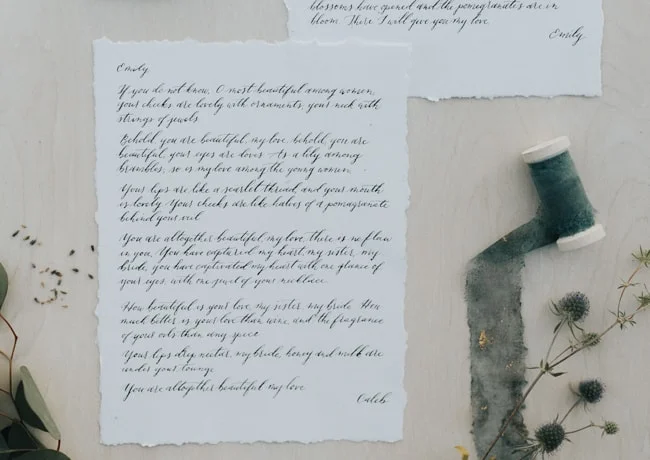 blossoms have opened and the pomegranates are in
bloom. There I will give you my love.
Emily
Emily,
If you do not know, O most beautiful among women,
your cheeks are lovely with ornaments, your neck with
strings of jewels.
Behold, you are beautiful, my love, behold, you are
beautiful, your eyes are doves. As a lily among
brambles, so is my love among the young women.
Your lips are like a scarlet thread, and your mouth
is lovely. Your cheeks are like halves of a pomegranate
behind your veil.
You are altogether beautiful, my love, there is no flaw
in you. You have captured my heart, my sister, my
bride, you have captivated my heart with one glance of
your eyes, with one jewel of your necklace.
How beautiful is your love, my sister, my bride. How
much better is your love than wine, and the fragrance
of your oils than any spice.
Your lips drip nectar, my bride, honey and milk are
under your tounge.
You are altogether beautiful my love.
Caleb